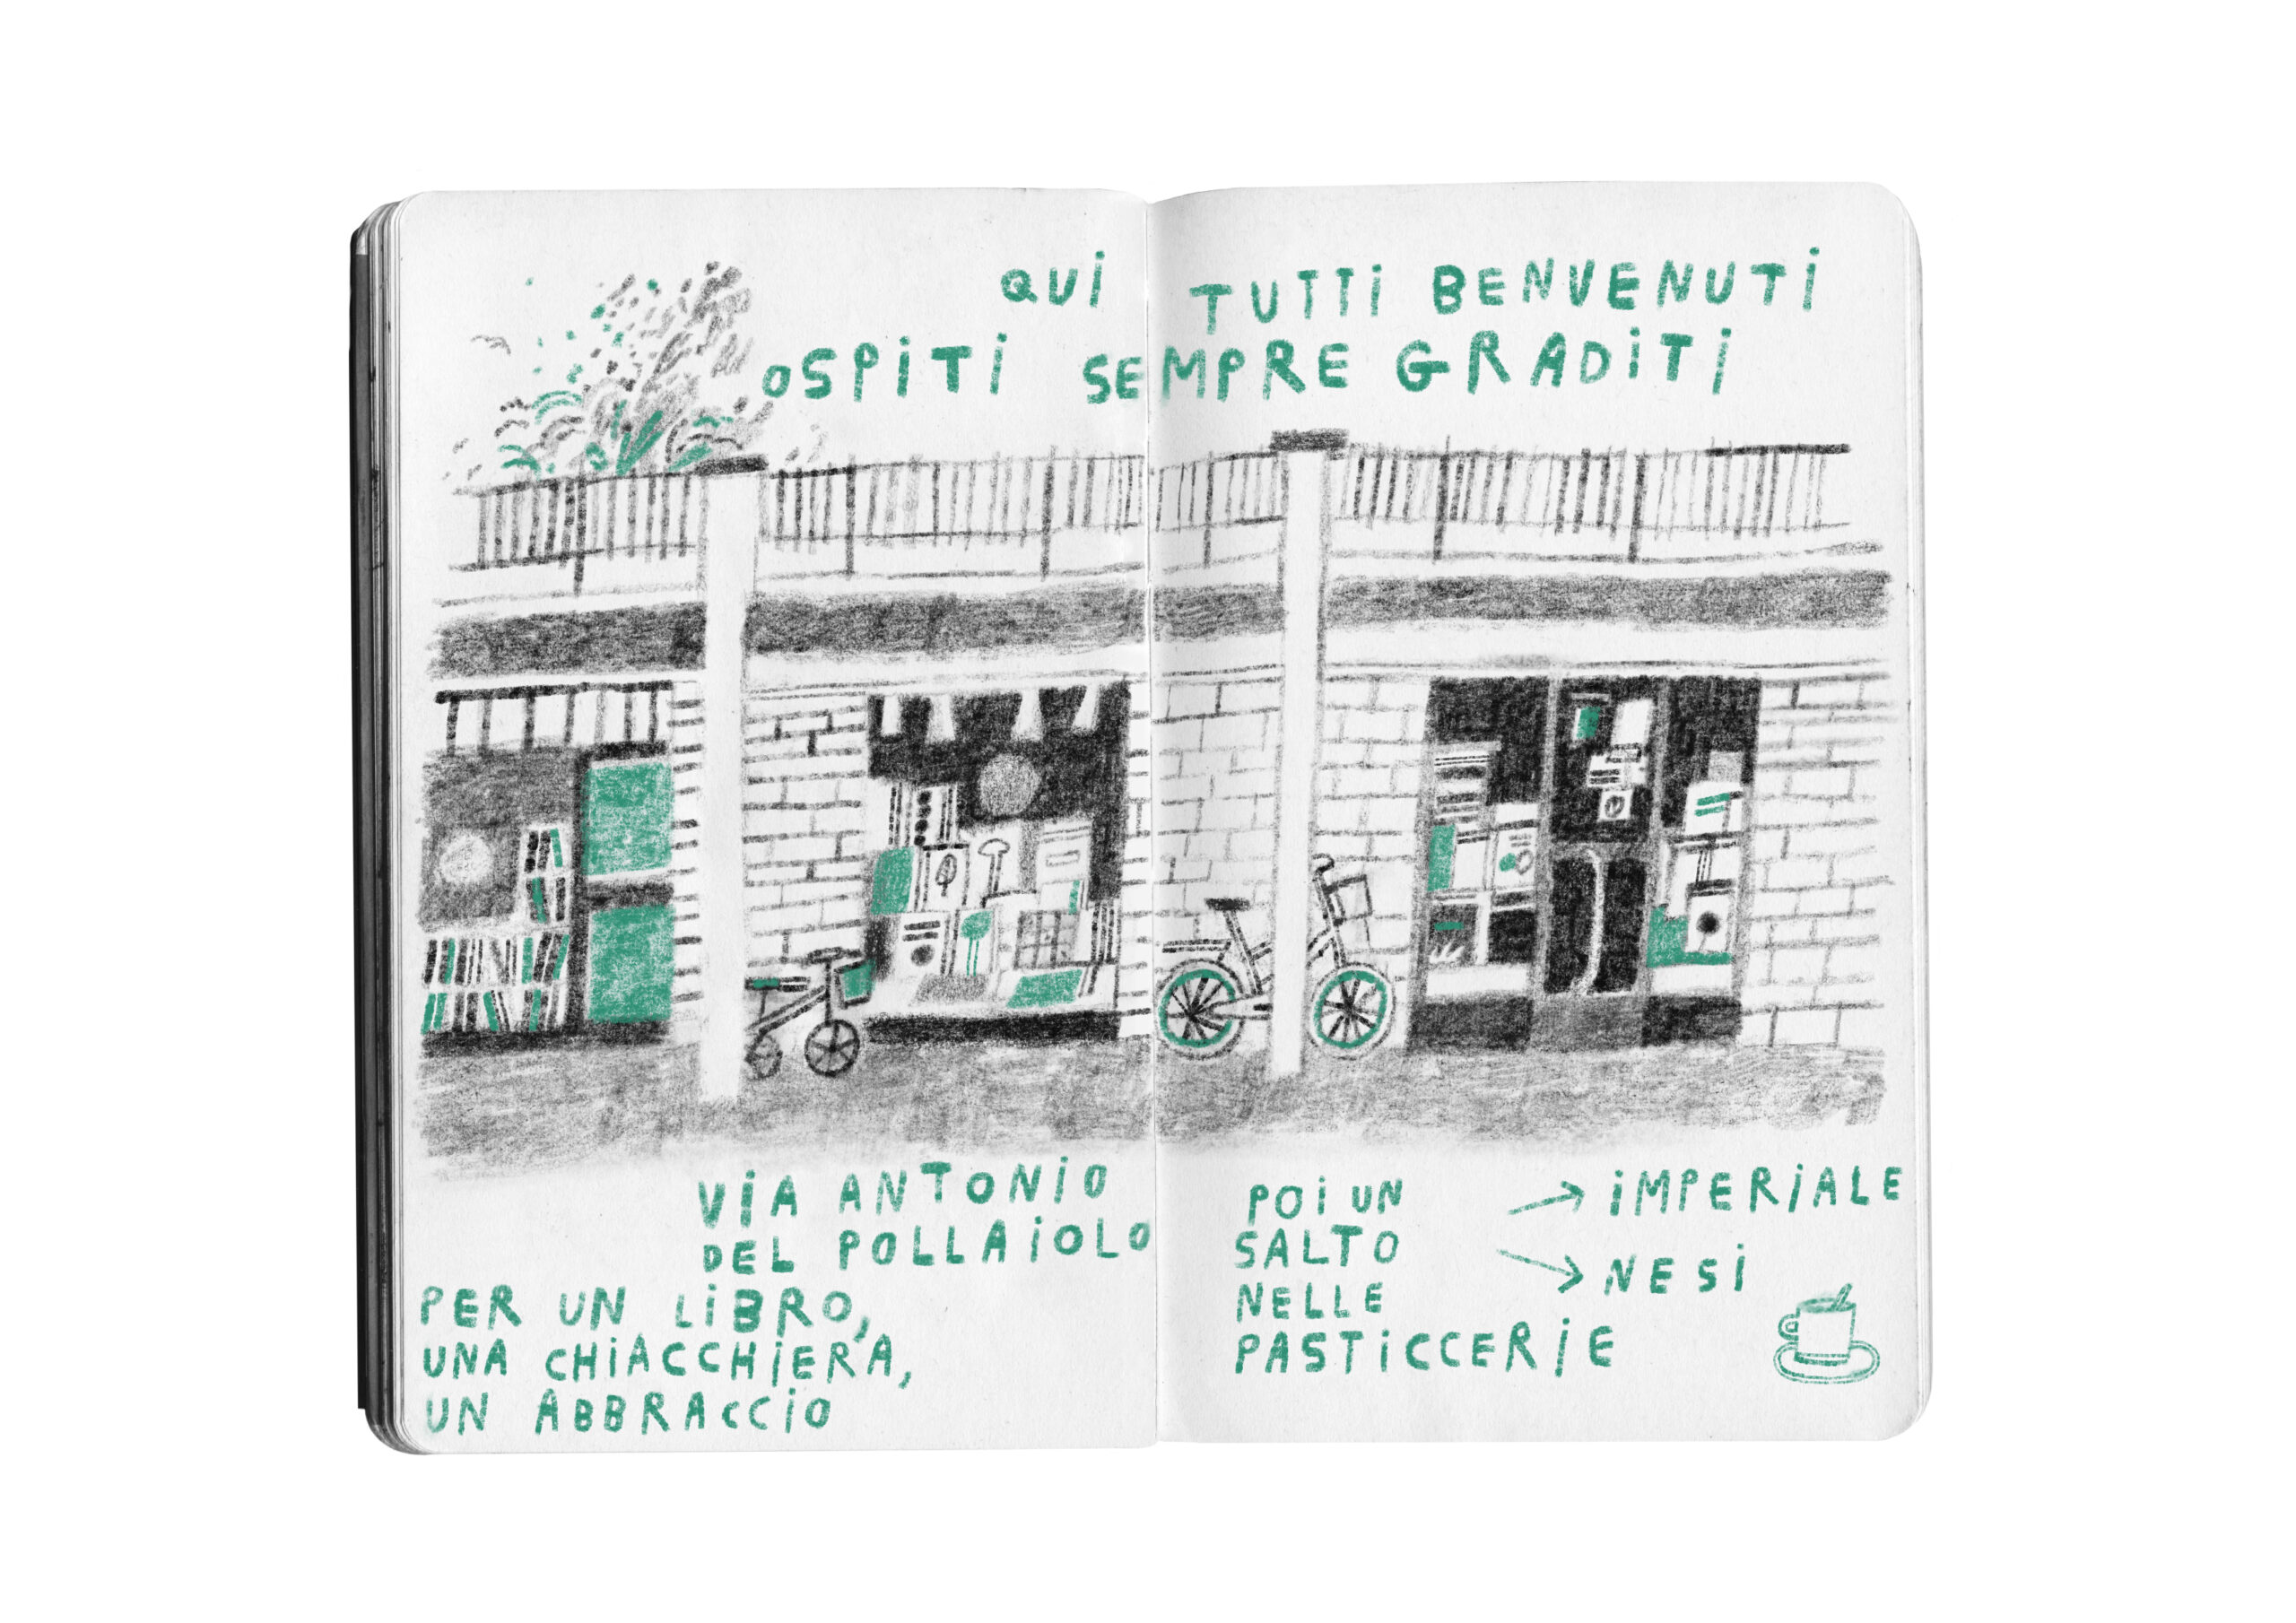 QUI TUTTI BENVENUTI
OSPITI SEMPRE GRADITI
VIA ANTONIO
DEL POLLAIOLO
PER UN LIBRO,
UNA CHIACCHIERA,
UN ABBRACCIO
POI UN
SALTO
NELLE
PASTICCERIE
→ IMPERIALE
→ NESI